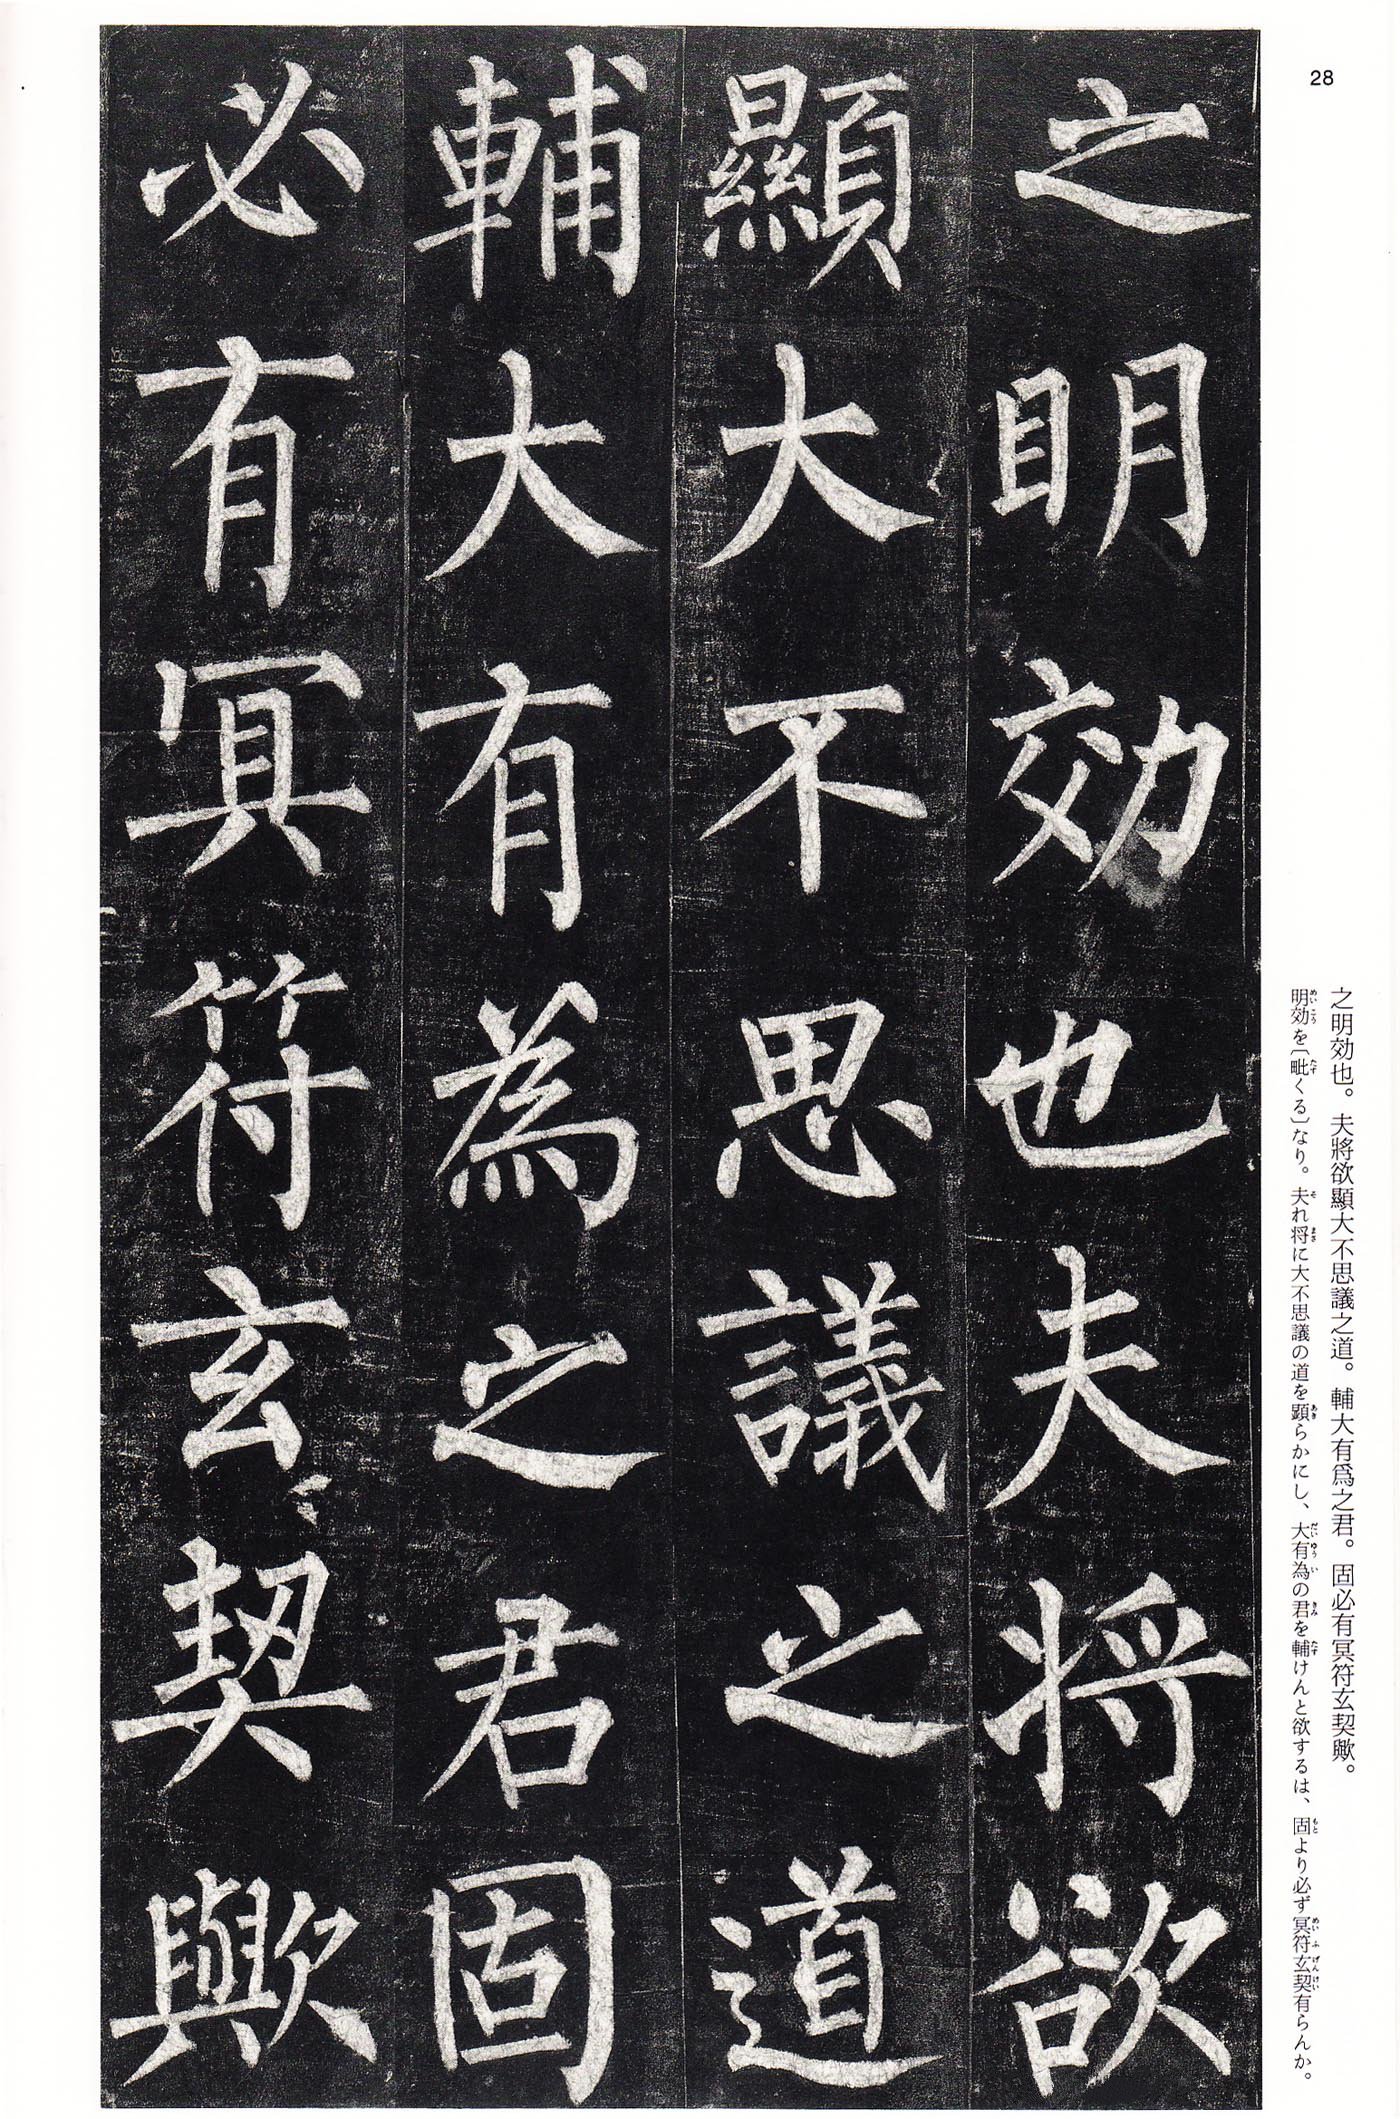 28
之明効也夫将欲
顯大不思議之道
輔大有為之君固
必有冥符玄契歟
之明効也。夫將欲顯大不思議之道。輔大有爲之君。固必有冥符玄契歟。
明効を〔毗くる〕なり。夫れ将に大不思議の道を顕らかにし、大有為の君を輔けんと欲するは、固より必ず冥符玄契有らんか。